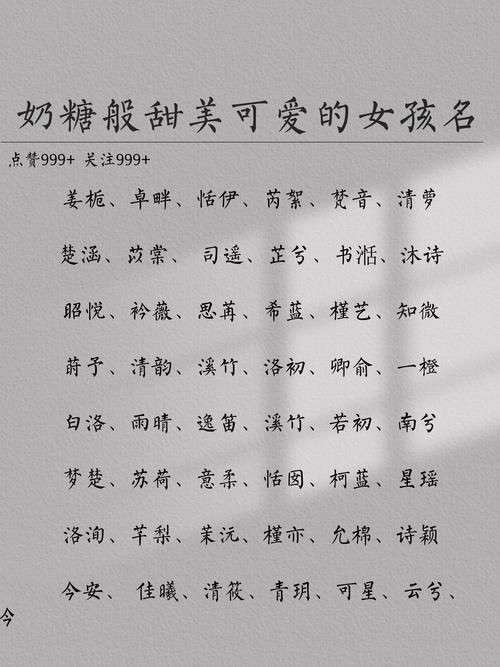 奶糖般甜美可爱的女孩名
点赞999+ 关注999+
姜栀、卓畔、恬伊、芮絮、梵音、清萝
楚涵、苡棠、 司遥、芷兮、书湉、沐诗
昭悦、衿薇、思苒、希蓝、槿艺、知微
莳予、清韵、溪竹、洛初、卿俞、一橙
白洛、雨晴、逸笛、溪竹、若初、南兮
梦楚、苏荷、意柔、恬囡、柯蓝、星瑶
洛洵、芊梨、茉沅、槿亦、允棉、诗颖
今安、 佳曦、清筱、青玥、可星、云兮、
今